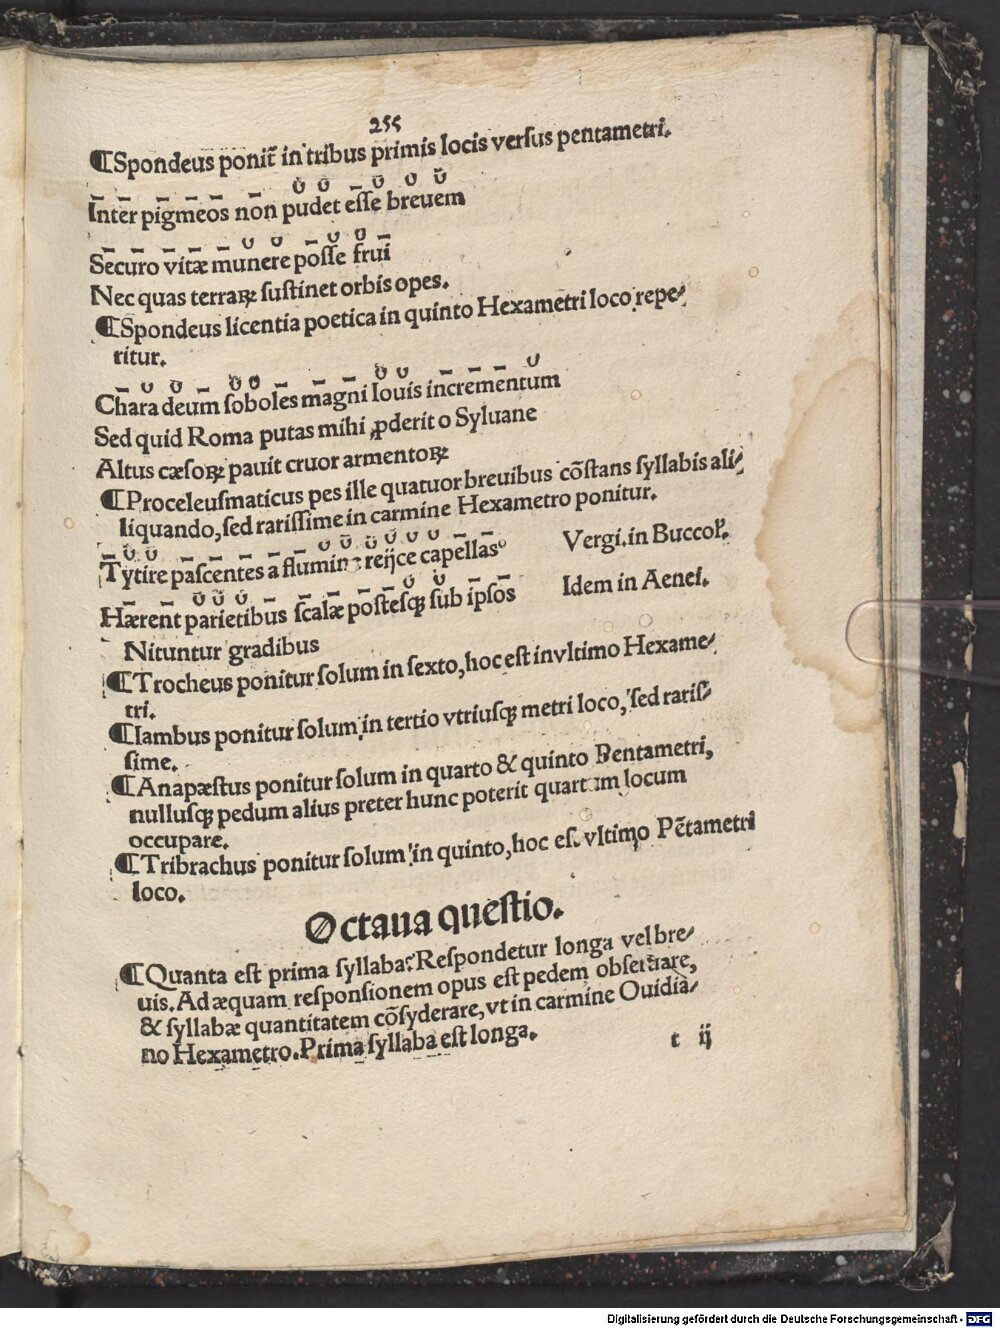 255
¶Spondeus ponit̃ in tribus primis locis versus pentametri.
Inter pigmeos non pudet eſſe breuem
Securo vitæ munere poſſe frui
Nec quas terraꝝ ſuſtinet orbis opes.
¶Spondeus licentia poetica in quinto Hexametri loco repe⸗
ritur.
Chara deum ſoboles magni Iouis incrementum
Sed quid Roma putas mihi ꝓderit o Syluane
Altus cæſoꝝ pauit cruor armentoꝝ
¶Proceleuſmaticus pes ille quatuor breuibus cõſtans ſyllabis ali⸗
liquando, ſed rariſſime in carmine Hexametro ponitur.
Tytire paſcentes a flumine reijce capellas
Vergi. in Buccol.
Hærent parietibus ſcalæ poſteſqꝫ ſub ipſos
Idem in Aenei.
Nituntur gradibus
¶Trocheus ponitur ſolum in ſexto, hoc eſt in vltimo Hexame⸗
tri.
¶Iambus ponitur ſolum in tertio vtriuſqꝫ metri loco, ſed rariſ⸗
ſime.
¶Anapæſtus ponitur ſolum in quarto & quinto Pentametri,
nulluſqꝫ pedum alius preter hunc poterit quartum locum
occupare.
¶Tribrachus ponitur ſolum in quinto, hoc eſt vltimo Pẽtametri
loco.
Octaua queſtio.
¶Quanta eſt prima ſyllaba? Reſpondetur longa vel bre⸗
uis. Ad æquam reſponſionem opus eſt pedem obſeruare,
& ſyllabæ quantitatem cõſyderare, vt in carmine Ouidia⸗
no Hexametro. Prima ſyllaba eſt longa.
t ij
Digitalisierung gefördert durch die Deutsche Forschungsgemeinschaft - DFG